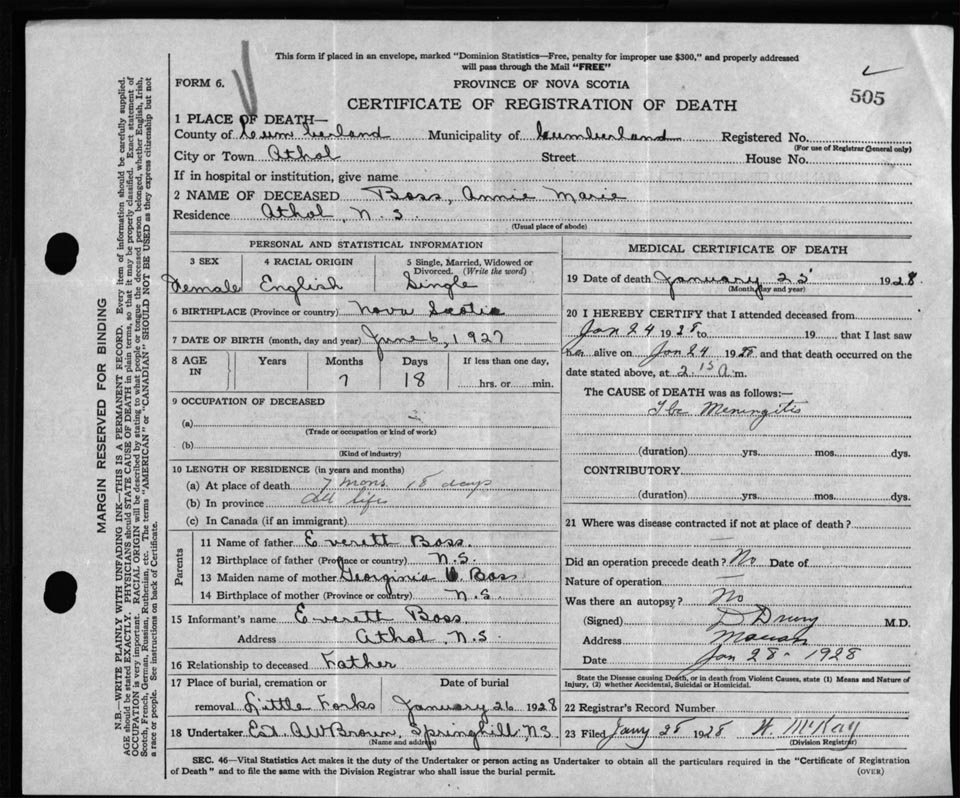 This form if placed in an envelope, marked "Dominion Statistics—Free, penalty for improper use $300," and properly addressed
will pass through the Mail "FREE"
FORM 6.
PROVINCE OF NOVA SCOTIA
505
CERTIFICATE OF REGISTRATION OF DEATH
1 PLACE OF DEATH—
County of Cumberland Municipality of Cumberland Registered No.
(For use of Registrar General only)
City or Town Athol Street House No.
If in hospital or institution, give name
2 NAME OF DECEASED Boss, Annie Marie
Residence Athol, N.S.
(Usual place of abode)
PERSONAL AND STATISTICAL INFORMATION
3 SEX 4 RACIAL ORIGIN 5 Single, Married, Widowed or
Divorced. (Write the word)
Female English Single
6 BIRTHPLACE (Province or country) Nova Scotia
7 DATE OF BIRTH (month, day and year) June 6, 1927
8 AGE IN Years Months Days If less than one day,
7 18 hrs. or min.
9 OCCUPATION OF DECEASED
(a)
(Trade or occupation or kind of work)
(b)
(Kind of industry)
10 LENGTH OF RESIDENCE (in years and months)
(a) At place of death 7 mons. 18 days
(b) In province All life
(c) In Canada (if an immigrant)
Parents
11 Name of father Everett Boss
12 Birthplace of father (Province or country) N.S.
13 Maiden name of mother Georginia Boss
14 Birthplace of mother (Province or country) N.S.
15 Informant's name Everett Boss
Address Athol, N.S.
16 Relationship to deceased Father
17 Place of burial, cremation or Date of burial
removal Little Forks January 26 1928
18 Undertaker Est. A W Brown, Springhill, N.S.
(Name and address)
MEDICAL CERTIFICATE OF DEATH
19 Date of death January 25 1928
(Month, day and year)
20 I HEREBY CERTIFY that I attended deceased from
Jan 24 1928 to 19 that I last saw
her alive on Jan 24 1928 and that death occurred on the
date stated above, at 2.15 a.m.
The CAUSE of DEATH was as follows:—
Tbc Meningitis
(duration) yrs. mos. dys.
CONTRIBUTORY
(duration) yrs. mos. dys.
21 Where was disease contracted if not at place of death?
Did an operation precede death? No Date of
Nature of operation
Was there an autopsy? No
(Signed) D Drury M.D.
Address Maccan
Date Jan 28 - 1928
State the Disease causing Death, or in death from Violent Causes, state (1) Means and Nature of
Injury, (2) whether Accidental, Suicidal or Homicidal.
22 Registrar's Record Number
23 Filed Jany 28 1928 McKay
(Division Registrar)
SEC. 46—Vital Statistics Act makes it the duty of the Undertaker or person acting as Undertaker to obtain all the particulars required in the "Certificate of Registration
of Death" and to file the same with the Division Registrar who shall issue the burial permit. (OVER)
MARGIN RESERVED FOR BINDING
N.B.—WRITE PLAINLY WITH UNFADING INK—THIS IS A PERMANENT RECORD. Every item of information should be carefully supplied.
AGE should be stated EXACTLY. PHYSICIANS should STATE CAUSE OF DEATH in plain terms, so that it may be properly classified. Exact statement of
OCCUPATION is very important. RACIAL ORIGIN will be described by stating to what people or tongue the deceased person belonged, whether English, Irish,
Scotch, French, German, Russian, Ruthenian, etc. The terms "AMERICAN" or "CANADIAN" SHOULD NOT BE USED as they express citizenship but not
a race or people. See instructions on back of Certificate.